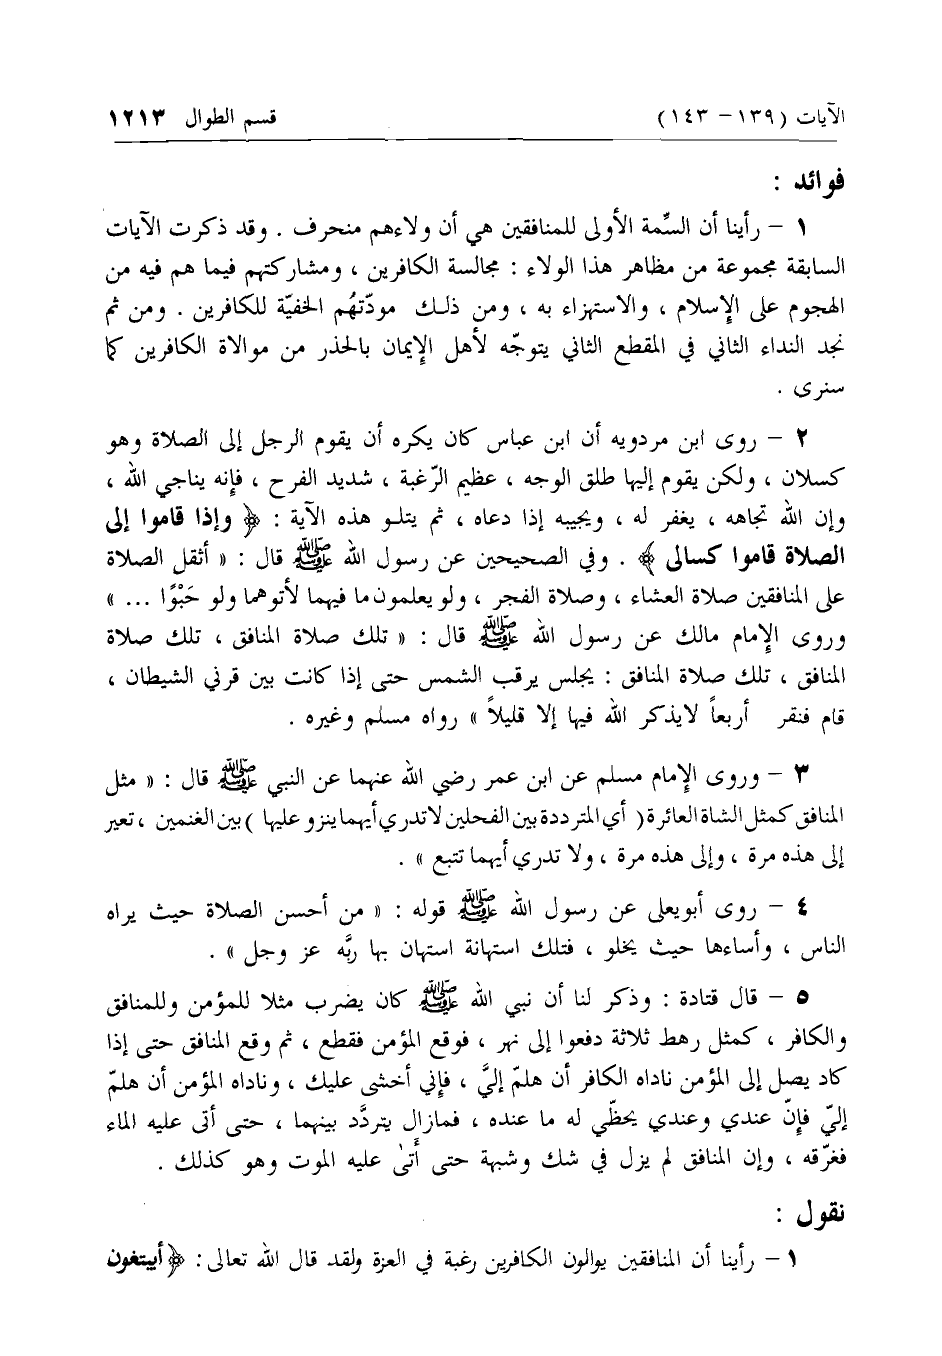 الآيات ( ١٣٩ – ١٤٣ ) قسم الطوال ١٢١٣
فوائد :
١ – رأينا أن السِّمة الأولى للمنافقين هي أن ولاءهم منحرف . وقد ذكرت الآيات
السابقة مجموعة من مظاهر هذا الولاء : مجالسة الكافرين ، ومشاركتهم فيما هم فيه من
الهجوم على الإسلام ، والاستهزاء به ، ومن ذلك مودّتهُم الخفيّة للكافرين . ومن ثم
نجد النداء الثاني في المقطع الثاني يتوجّه لأهل الإيمان بالحذر من موالاة الكافرين كما
سنرى .
٢ – روى ابن مردويه أن ابن عباس كان يكره أن يقوم الرجل إلى الصلاة وهو
كسلان ، ولكن يقوم إليها طلق الوجه ، عظيم الرّغبة ، شديد الفرح ، فإنه يناجي الله ،
وإن الله تجاهه ، يغفر له ، ويجيبه إذا دعاه ، ثم يتلو هذه الآية : ﴿ وإذا قاموا إلى
الصلاة قاموا كسالى ﴾ . وفي الصحيحين عن رسول الله ﷺ قال : « أثقل الصلاة
على المنافقين صلاة العشاء ، وصلاة الفجر ، ولو يعلمون ما فيهما لأتوهما ولو حَبْوًا ... »
وروى الإمام مالك عن رسول الله ﷺ قال : « تلك صلاة المنافق ، تلك صلاة
المنافق ، تلك صلاة المنافق : يجلس يرقب الشمس حتى إذا كانت بين قرني الشيطان ،
قام فنقر أربعاً لايذكر الله فيها إلا قليلاً » رواه مسلم وغيره .
٣ – وروى الإمام مسلم عن ابن عمر رضي الله عنهما عن النبي ﷺ قال : « مثل
المنافق كمثل الشاة العائرة ( أي المترددة بين الفحلين لا تدري أيهما ينزو عليها ) بين الغنمين ، تعير
إلى هذه مرة ، وإلى هذه مرة ، ولا تدري أيهما تتبع » .
٤ – روى أبويعلى عن رسول الله ﷺ قوله : « من أحسن الصلاة حيث يراه
الناس ، وأساءها حيث يخلو ، فتلك استهانة استهان بها ربَّه عز وجل » .
٥ – قال قتادة : وذكر لنا أن نبي الله ﷺ كان يضرب مثلا للمؤمن وللمنافق
والكافر ، كمثل رهط ثلاثة دفعوا إلى نهر ، فوقع المؤمن فقطع ، ثم وقع المنافق حتى إذا
كاد يصل إلى المؤمن ناداه الكافر أن هلمّ إليَّ ، فإني أخشى عليك ، وناداه المؤمن أن هلمّ
إليّ فإنّ عندي وعندي يحظّي له ما عنده ، فمازال يتردَّد بينهما ، حتى أتى عليه الماء
فغرّقه ، وإن المنافق لم يزل في شك وشبهة حتى أَتىٰ عليه الموت وهو كذلك .
نقول :
١ – رأينا أن المنافقين يوالون الكافرين رغبة في العزة ولقد قال الله تعالى : ﴿أيبتغون